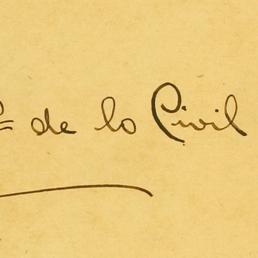 de lo Civil